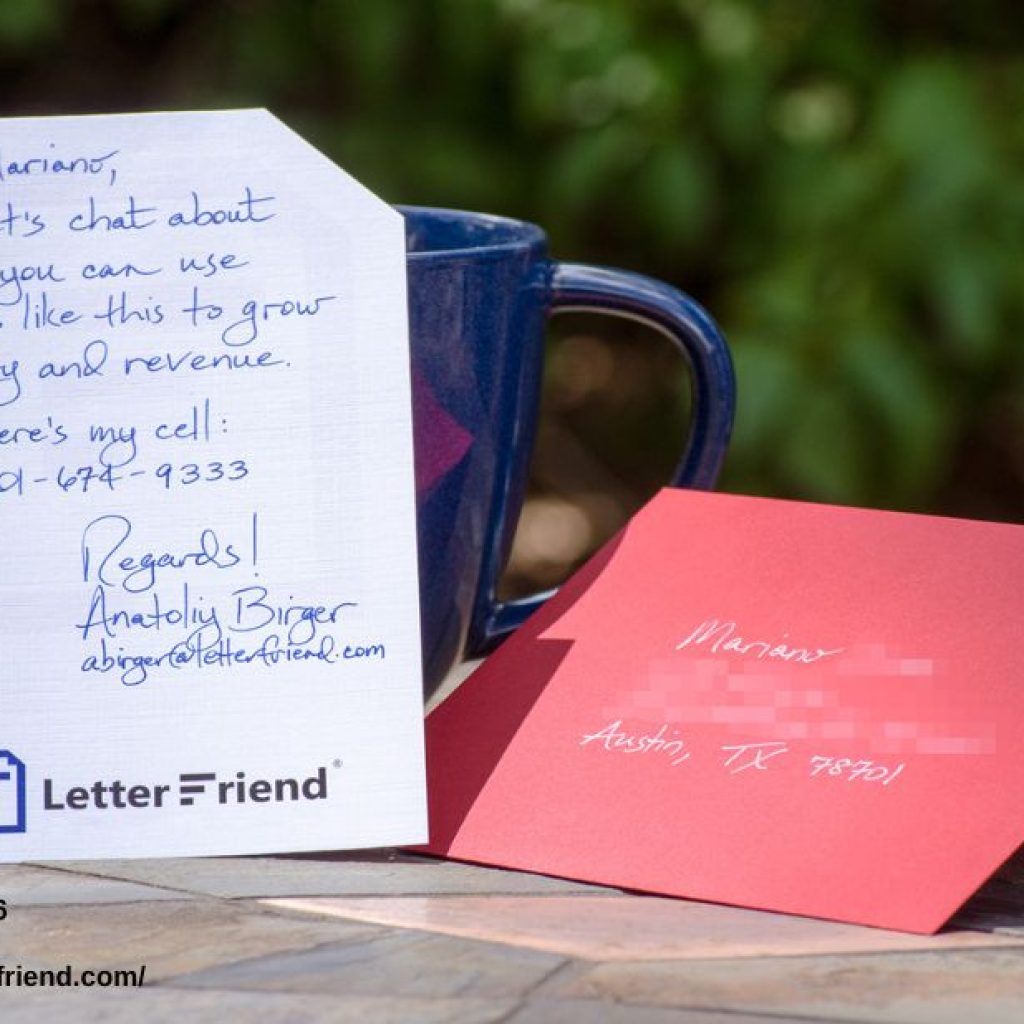 ariano,
t's chat about
you can use
like this to grow
y and revenue.
ere's my cell:
01-674-9333
Regards!
Anatoliy Birger
abirger@letterfriend.com
Letter Friend®
Mariano
Austin, TX 78701
6
friend.com/